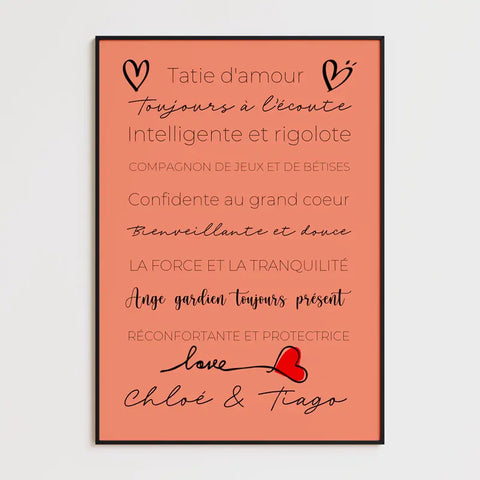 Tatie d'amour
Toujours à l'écoute
Intelligente et rigolote
COMPAGNON DE JEUX ET DE BÉTISES
Confidente au grand coeur
Bienveillante et douce
LA FORCE ET LA TRANQUILITÉ
Ange gardien toujours présent
RÉCONFORTANTE ET PROTECTRICE
love
Chloé & Tiago